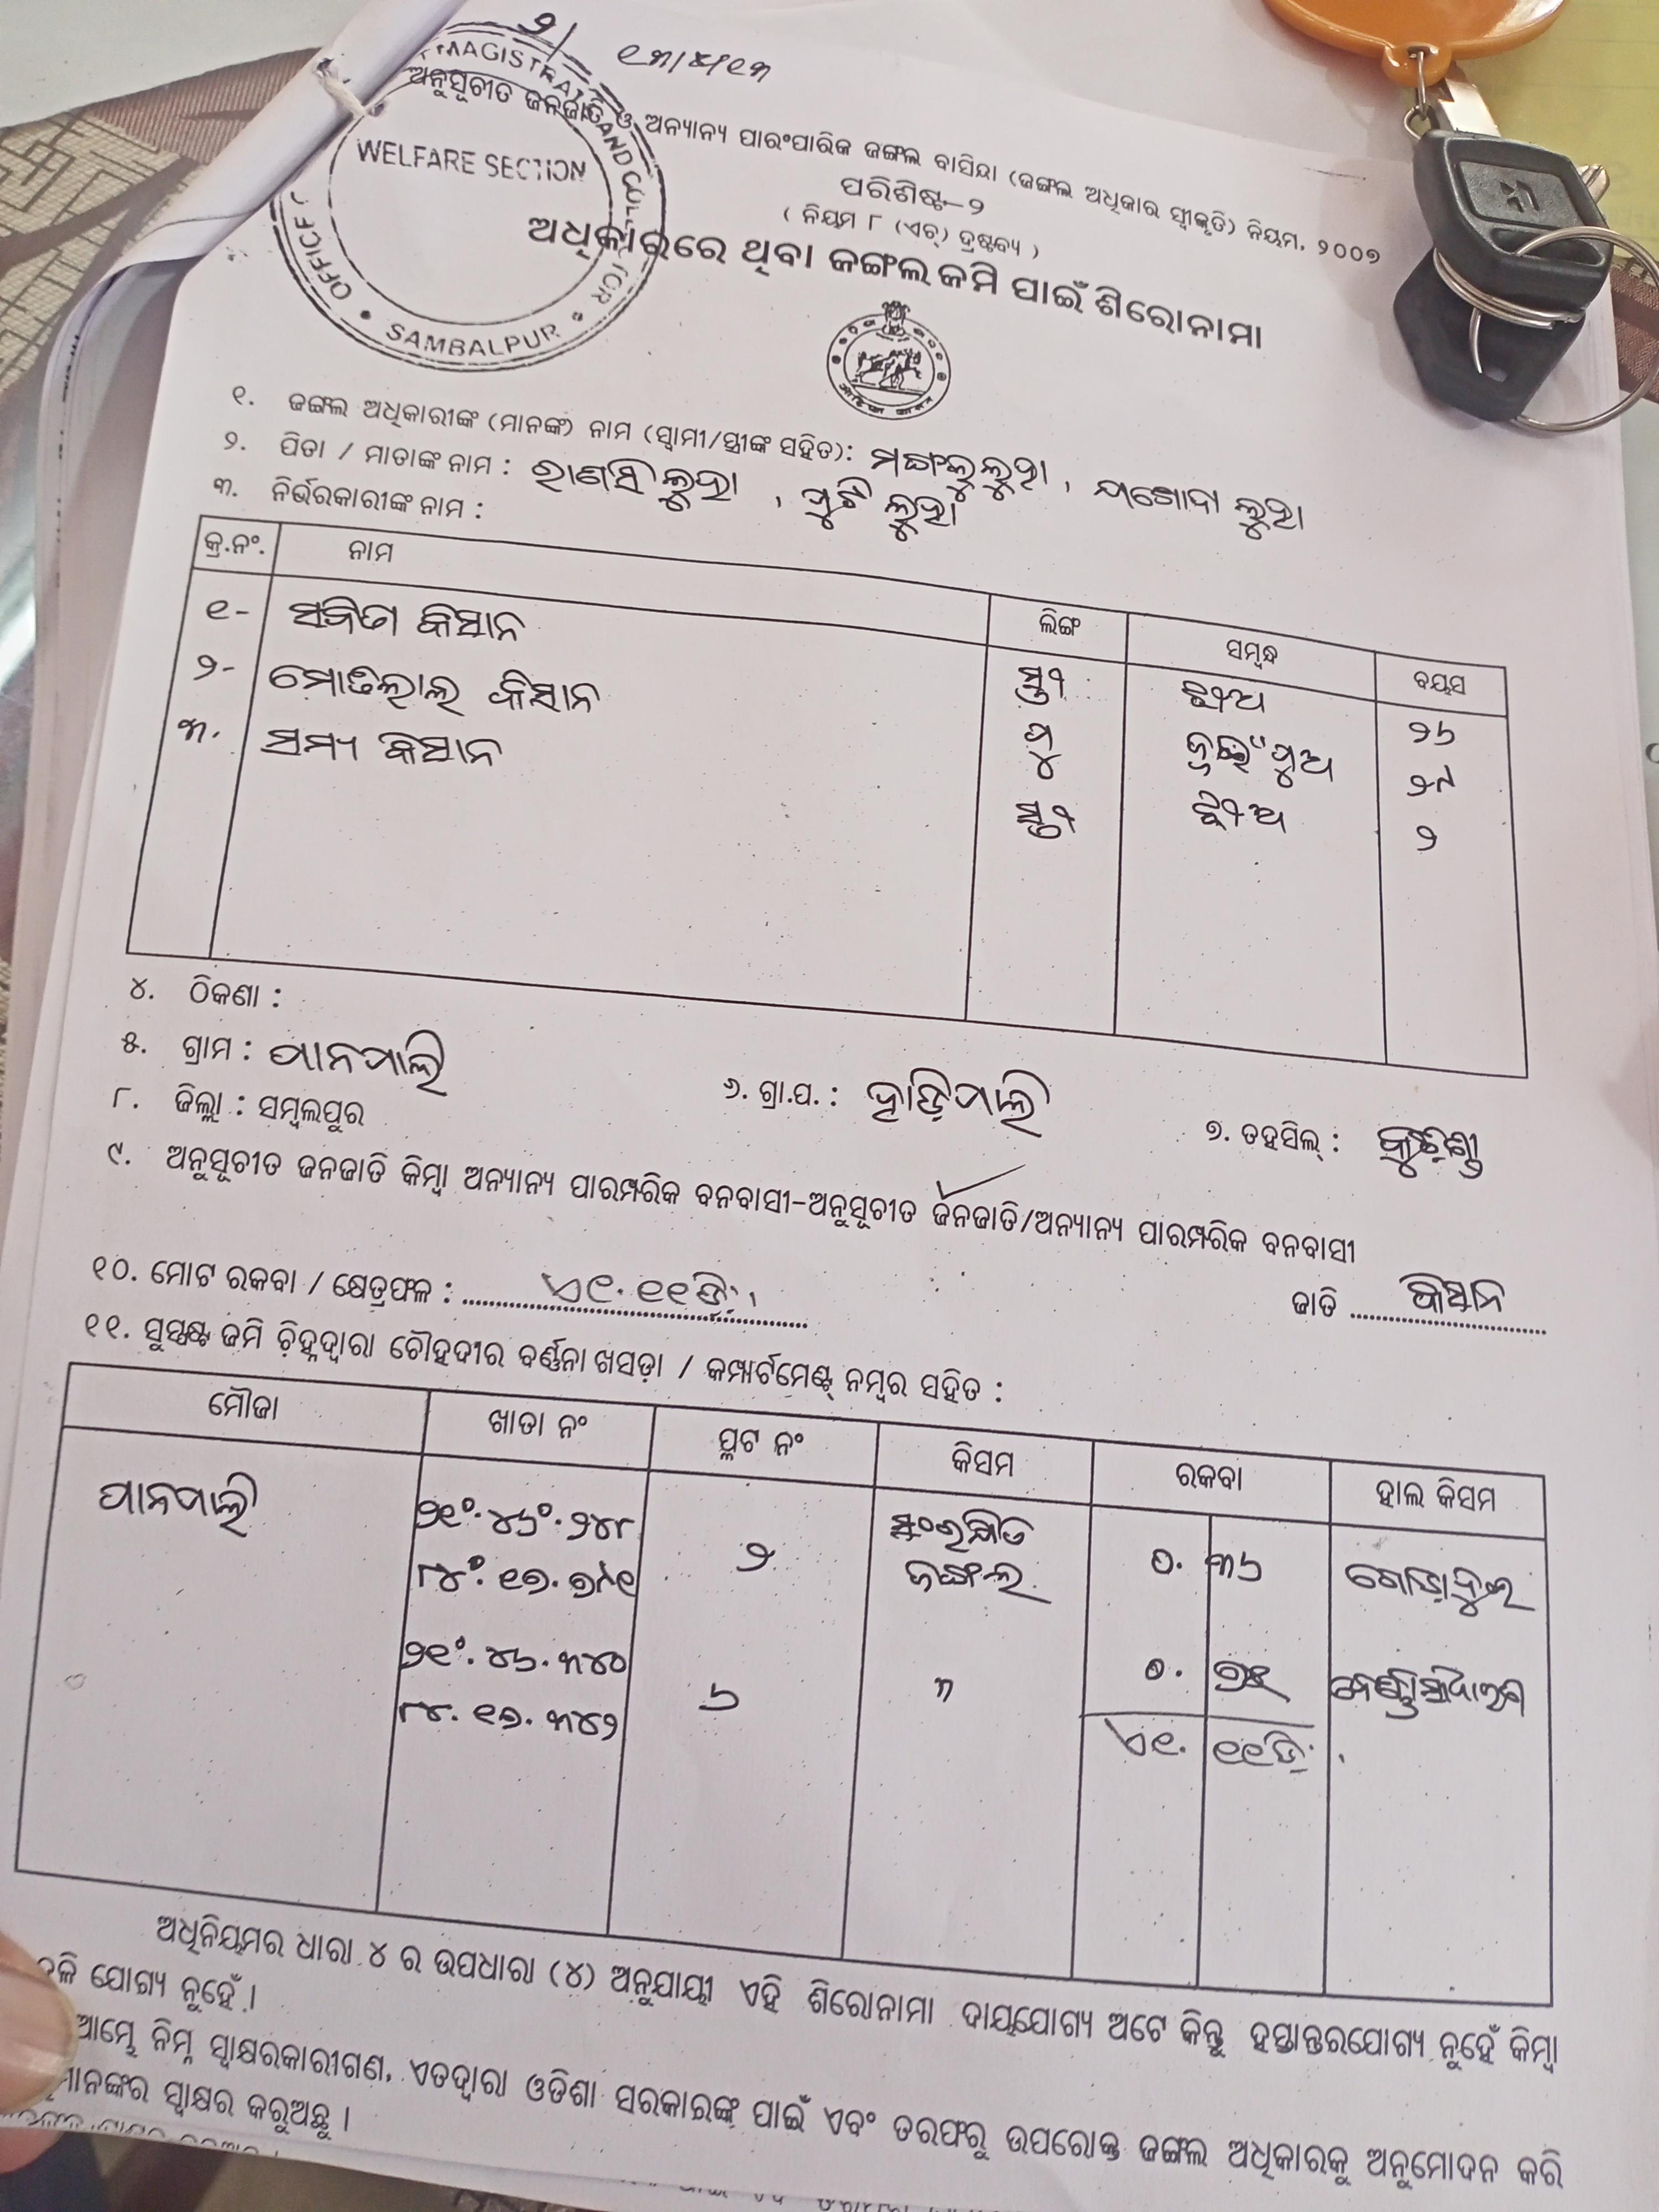 ୨/ ୧୩/୪/୧୩
MAGISTRATE AND COLLECTOR
WELFARE SECTION
OFFICE
SAMBALPUR
ଅନୁସୂଚୀତ ଜନଜାତି ଓ ଅନ୍ୟାନ୍ୟ ପାରଂପାରିକ ଜଙ୍ଗଲ ବାସିନ୍ଦା (ଜଙ୍ଗଲ ଅଧିକାର ସ୍ୱୀକୃତି) ନିୟମ, ୨୦୦୭
ପରିଶିଷ୍ଟ-୨
( ନିୟମ ୮ (ଏଚ୍) ଦ୍ରଷ୍ଟବ୍ୟ )
ଅଧିକାରରେ ଥିବା ଜଙ୍ଗଲ ଜମି ପାଇଁ ଶିରୋନାମା
୧. ଜଙ୍ଗଲ ଅଧିକାରୀଙ୍କ (ମାନଙ୍କ) ନାମ (ସ୍ୱାମୀ/ସ୍ତ୍ରୀଙ୍କ ସହିତ): ମଙ୍ଗଲୁ ଲୁହା, ଯଶୋଦା ଲୁହା
୨. ପିତା / ମାତାଙ୍କ ନାମ : ଲୁହା, ଲୁହା
୩. ନିର୍ଭରକାରୀଙ୍କ ନାମ :
କ୍ର.ନଂ. ନାମ ଲିଙ୍ଗ ସମ୍ବନ୍ଧ ବୟସ
୧- ସବିତା କିସାନ ସ୍ତ୍ରୀ ଝିଅ ୨୬
୨- ମୋତିଲାଲ କିସାନ ପୁ ଜ୍ୱାଇଁ ପୁଅ ୨୯
୩. କିସାନ ସ୍ତ୍ରୀ ଝିଅ ୨
୪. ଠିକଣା :
୫. ଗ୍ରାମ : ପାନପାଲି ୬. ଗ୍ରା.ପ. : ହାଡ଼ିପାଲି ୭. ତହସିଲ୍ : କୁଚିଣ୍ଡା
୮. ଜିଲ୍ଲା : ସମ୍ବଲପୁର
୯. ଅନୁସୂଚୀତ ଜନଜାତି କିମ୍ବା ଅନ୍ୟାନ୍ୟ ପାରମ୍ପରିକ ବନବାସୀ-ଅନୁସୂଚୀତ ଜନଜାତି/ଅନ୍ୟାନ୍ୟ ପାରମ୍ପରିକ ବନବାସୀ
ଜାତି କିସାନ
୧୦. ମୋଟ ରକବା / କ୍ଷେତ୍ରଫଳ : ଏ୧.୧୧ଡି.
୧୧. ସୁସ୍ପଷ୍ଟ ଜମି ଚିହ୍ନଦ୍ୱାରା ଚୌହଦୀର ବର୍ଣ୍ଣନା ଖସଡ଼ା / କମ୍ପାର୍ଟମେଣ୍ଟ୍ ନମ୍ବର ସହିତ :
ମୌଜା ଖାତା ନଂ ପ୍ଲଟ ନଂ କିସମ ରକବା ହାଲ କିସମ
ପାନପାଲି ୨୧°.୪୬°.୨୪୮ ୨ ସଂରକ୍ଷିତ ଜଙ୍ଗଲ ୦. ୩୬
୮୪°.୧୭.୭୯୧
୨୧°.୪୬.୩୪୦ ୬ ୦. ୭୫
୮୪.୧୭.୩୪୨ ଏ୧. ୧୧ଡି.
ଅଧିନିୟମର ଧାରା ୪ ର ଉପଧାରା (୪) ଅନୁଯାୟୀ ଏହି ଶିରୋନାମା ଦାୟଯୋଗ୍ୟ ଅଟେ କିନ୍ତୁ ହସ୍ତାନ୍ତରଯୋଗ୍ୟ ନୁହେଁ କିମ୍ବା
ଯୋଗ୍ୟ ନୁହେଁ ।
ଆମ୍ଭେ ନିମ୍ନ ସ୍ୱାକ୍ଷରକାରୀଗଣ, ଏତଦ୍ୱାରା ଓଡିଶା ସରକାରଙ୍କ ପାଇଁ ଏବଂ ତରଫରୁ ଉପରୋକ୍ତ ଜଙ୍ଗଲ ଅଧିକାରକୁ ଅନୁମୋଦନ କରି
ସ୍ୱାକ୍ଷର କରୁଅଛୁ ।